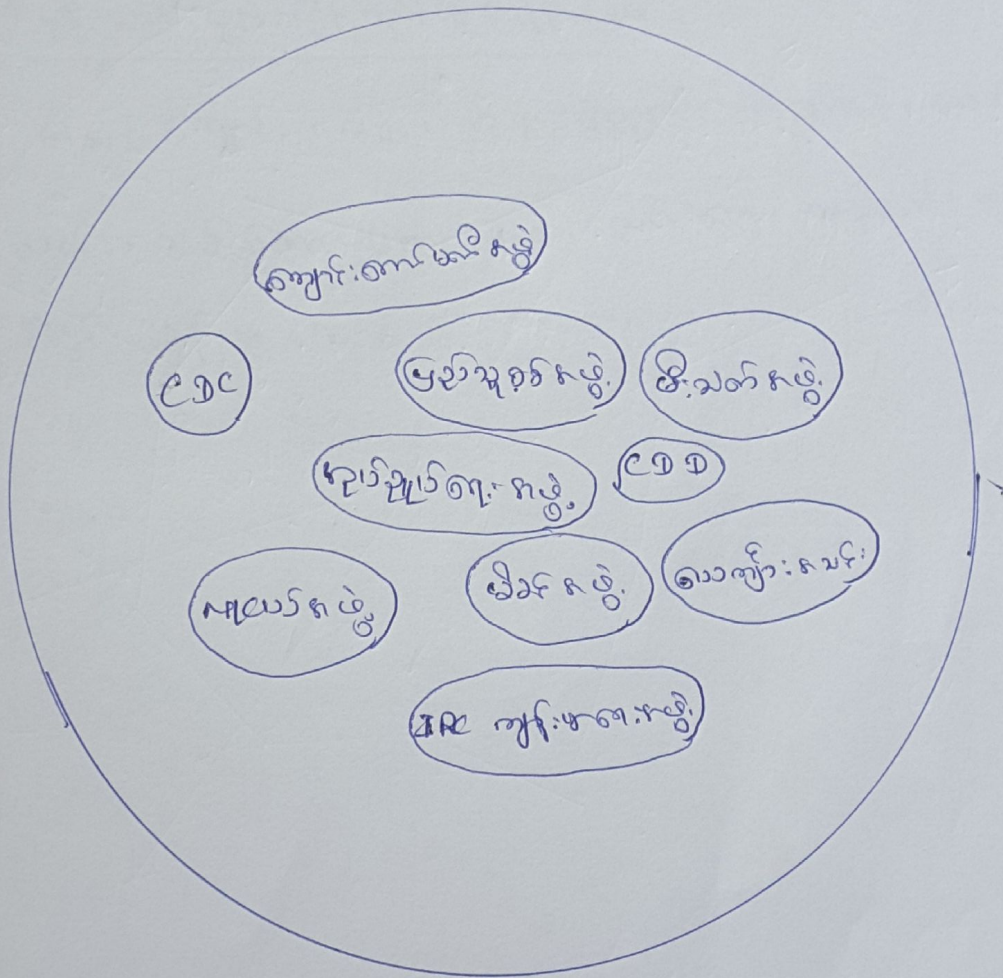 ကျောင်းကော်မတီအဖွဲ့
CDC
ပြည်သူ့စစ်အဖွဲ့
မီးသတ်အဖွဲ့
အုပ်ချုပ်ရေးအဖွဲ့
CDD
လူငယ်အဖွဲ့
မိခင်အဖွဲ့
ယောကျာ်းအသင်း
IRC ကျန်းမာရေးအဖွဲ့